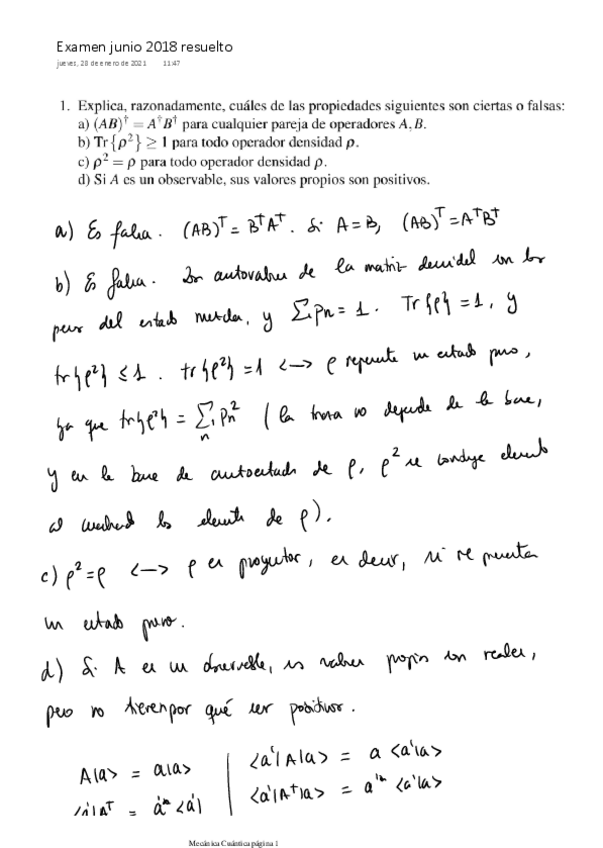 Examen junio 2018 resuelto
jueves, 28 de enero de 2021 11:47
1. Explica, razonadamente, cuáles de las propiedades siguientes son ciertas o falsas:
a) (AB)† = A†B† para cualquier pareja de operadores A, B.
b) Tr{ρ²} ≥ 1 para todo operador densidad ρ.
c) ρ² = ρ para todo operador densidad ρ.
d) Si A es un observable, sus valores propios son positivos.
a) Es falsa. (AB)^T = B†A†. Si A = B, (AB)^T = A†B†
b) Es falsa. Los autovalores de la matriz densidad son los
pesos del estado mezcla, y Σ Pn = 1. Tr{ρ} = 1, y
tr{ρ²} ≤ 1. tr{ρ²} = 1 <-> ρ representa un estado puro,
ya que tr{ρ²} = Σn Pn² (la traza no depende de la base,
y en la base de autoestados de ρ, ρ² se construye elevando
al cuadrado los elementos de ρ).
c) ρ² = ρ <-> ρ es proyector, es decir, si representa
un estado puro.
d) Si A es un observable, sus valores propios son reales,
pero no tienen por qué ser positivos.
A|a> = a|a> | <a'|A|a> = a <a'|a>
<a'|A† = a'* <a'| | <a'|A†|a> = a'* <a'|a>
Mecánica Cuántica página 1